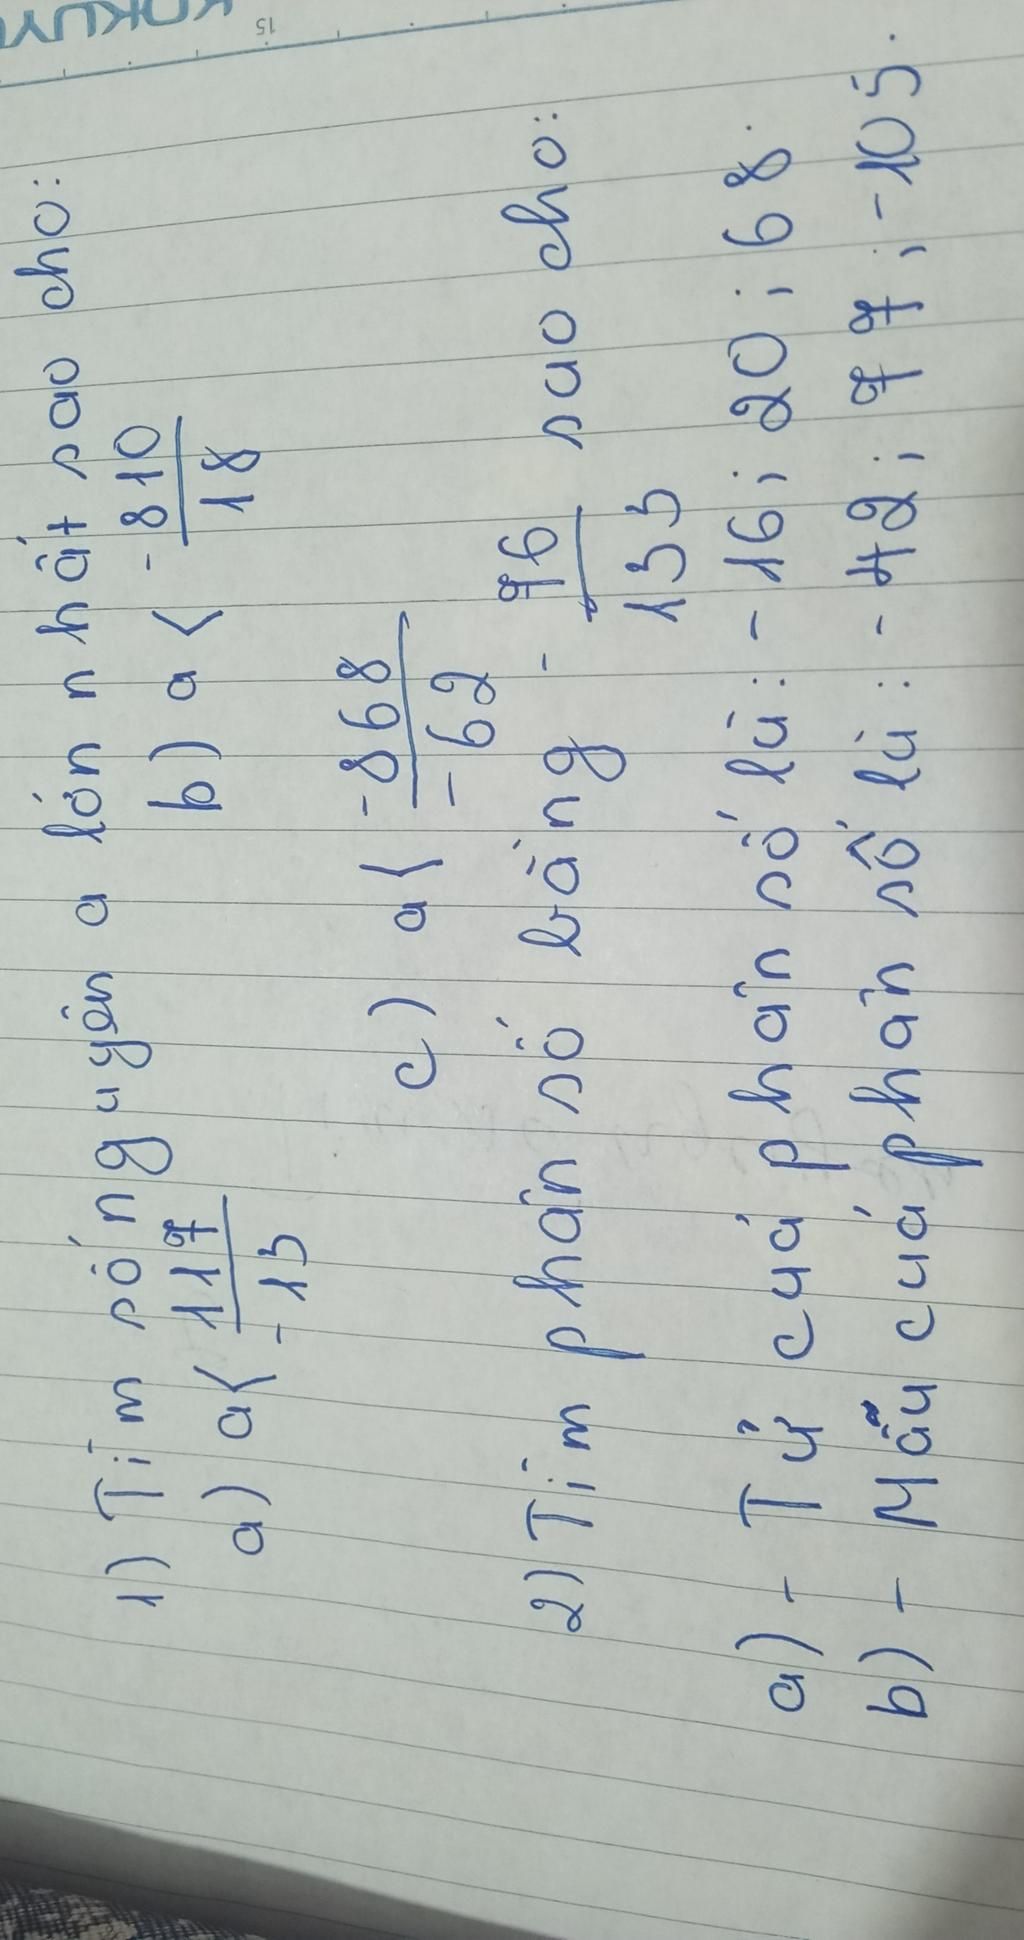 KOKUYO
15
1) Tìm số nguyên a lớn nhất sao cho:
a) a < 117/-13 b) a < -810/18
c) a < -868/-62
2) Tìm phân số bằng - 76/133 sao cho:
a) - Tử của phân số là: -16; 20; 68.
b) - Mẫu của phân số là: -42; 77; -105.